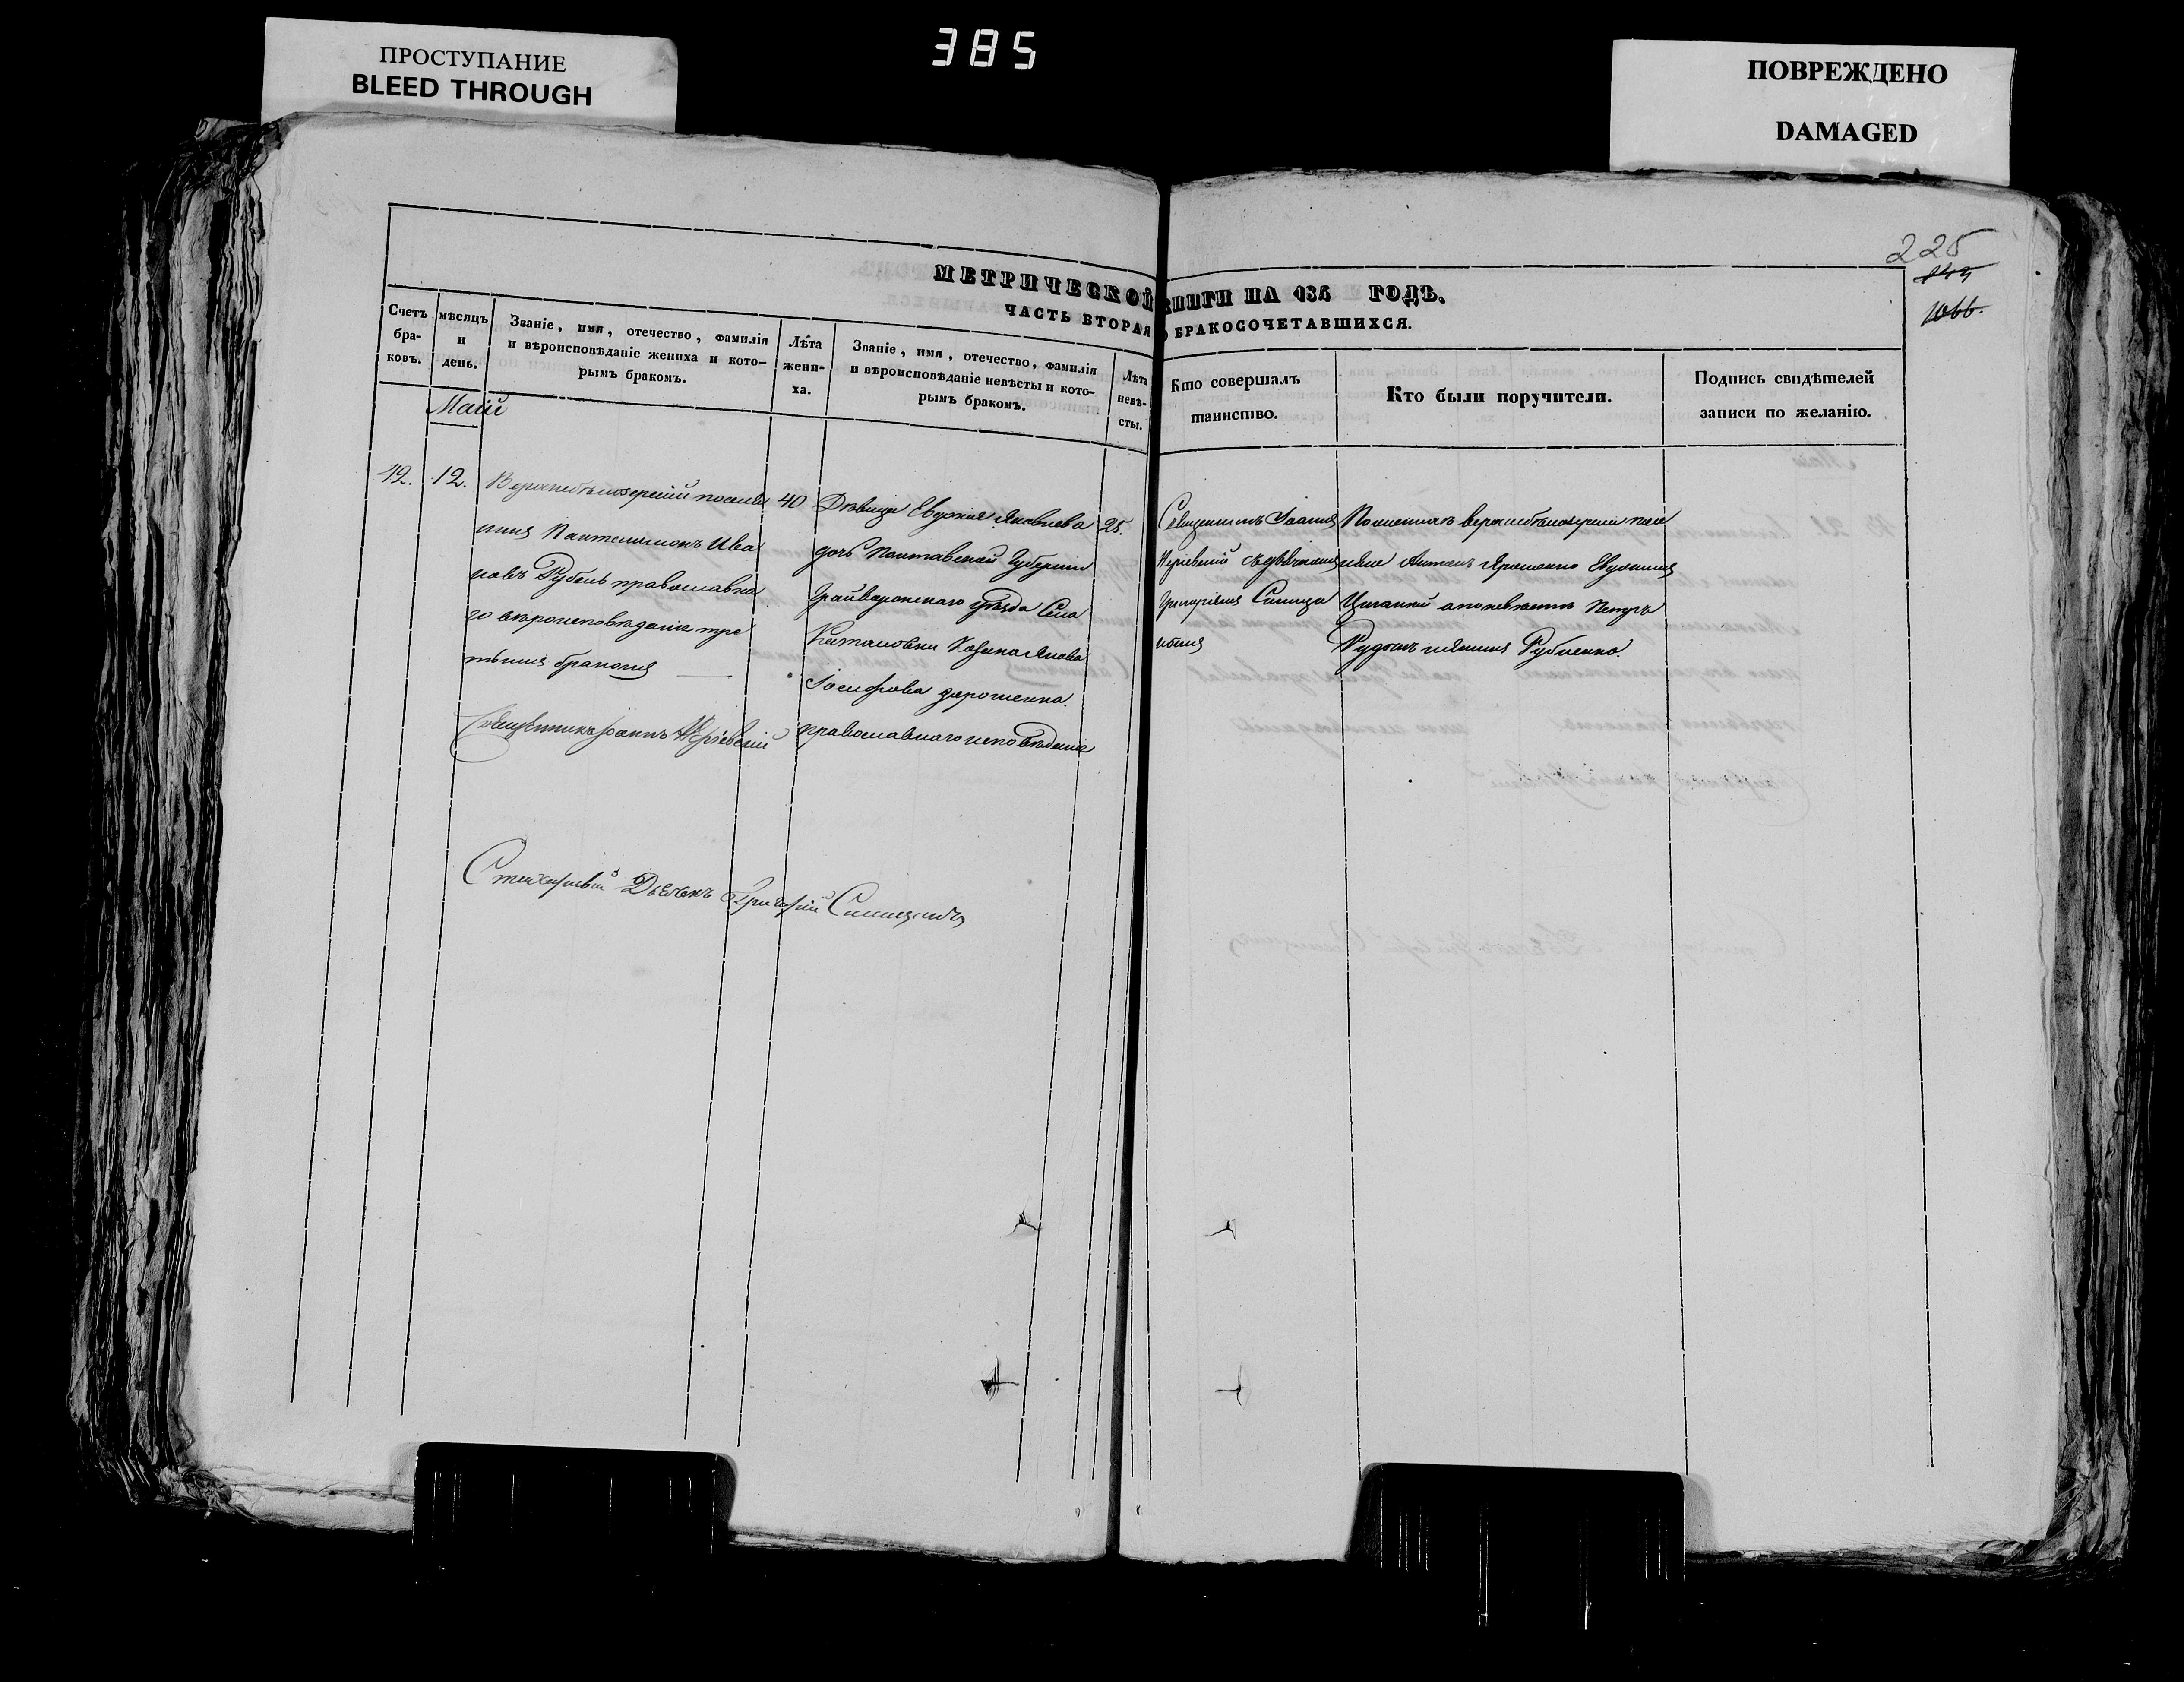 ПРОСТУПАНИЕ
BLEED THROUGH
385
ПОВРЕЖДЕНО
DAMAGED
225
1066.
МЕТРИЧЕСКОЙ КНИГИ НА 185 ГОДЪ.
ЧАСТЬ ВТОРАЯ О БРАКОСОЧЕТАВШИХСЯ.
Счетъ бра- ковъ.
мѣсяцъ и день.
Званіе, имя, отечество, фамилія
и вѣроисповѣданіе жениха и кото-
рымъ бракомъ.
Лѣта жени- ха.
Званіе, имя, отечество, фамилія
и вѣроисповѣданіе невѣсты и кото-
рымъ бракомъ.
Лѣта невѣ- сты.
Кто совершалъ
таинство.
Кто были поручители.
Подпись свидѣтелей
записи по желанію.
Маій
12.
12.
Верхнебѣлозерскій поселя
нинъ Пантелимонъ Ива
новъ Рубель православна
го вѣроисповѣданія тре
тьимъ бракомъ
Священникъ Іоаннъ
40
Дѣвица Евдокія Яковлева
дочь Полтавской Губерніи
Грайворонскаго уѣзда Села
Іосифова дорошенка
православнаго исповѣданія
25.
Священникъ Іоаннъ
съ дьячкомъ
Григоріемъ Синицы
нымъ
По женихѣ верхнебѣлозерскіи посе
ляне Антонъ Ярошенко Евдокимъ
Циганкій а по невѣстѣ Петръ
Рудь
Дьячекъ Григорій Синицынъ